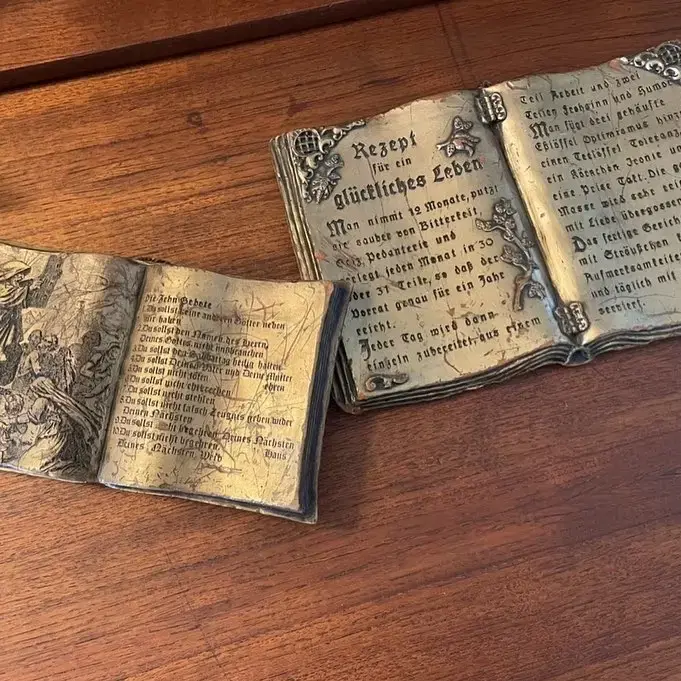 Die Zehn Gebote
1. Du sollst keine andern Götter neben
mir haben
2. Du sollst den Namen des Herrn
Deines Gottes nicht mißbrauchen
3. Du sollst den heilig halten
4. Du sollst Deinen Vater und Deine Mutter
ehren
5. Du sollst nicht töten
6. Du sollst nicht ehebrechen
7. Du sollst nicht stehlen
8. Du sollst nicht falsch Zeugnis geben wider
Deinen Nächsten
9. Du sollst nicht begehren Deines Nächsten
Haus
10. Du sollst nicht begehren
Deines Nächsten Weib
Rezept
für ein
glückliches Leben
Man nimmt 12 Monate, putzt
sie sauber von Bitterkeit
Geiz, Pedanterie und
zerlegt jeden Monat in 30
oder 31 Teile, so daß der
Vorrat genau für ein Jahr
reicht.
Jeder Tag wird dann
einzeln zubereitet aus einem
Teil Arbeit und zwei
Teilen Frohsinn und Humor
Man fügt drei gehäufte
Eßlöffel Optimismus hinzu
einen Teelöffel Toleranz
ein Körnchen Ironie un
eine Prise Takt. Die ga
Masse wird sehr rei
mit Liebe übergossen
Das fertige Gerich
mit Sträußchen
Aufmerksamkeiten
und täglich mit
serviert.